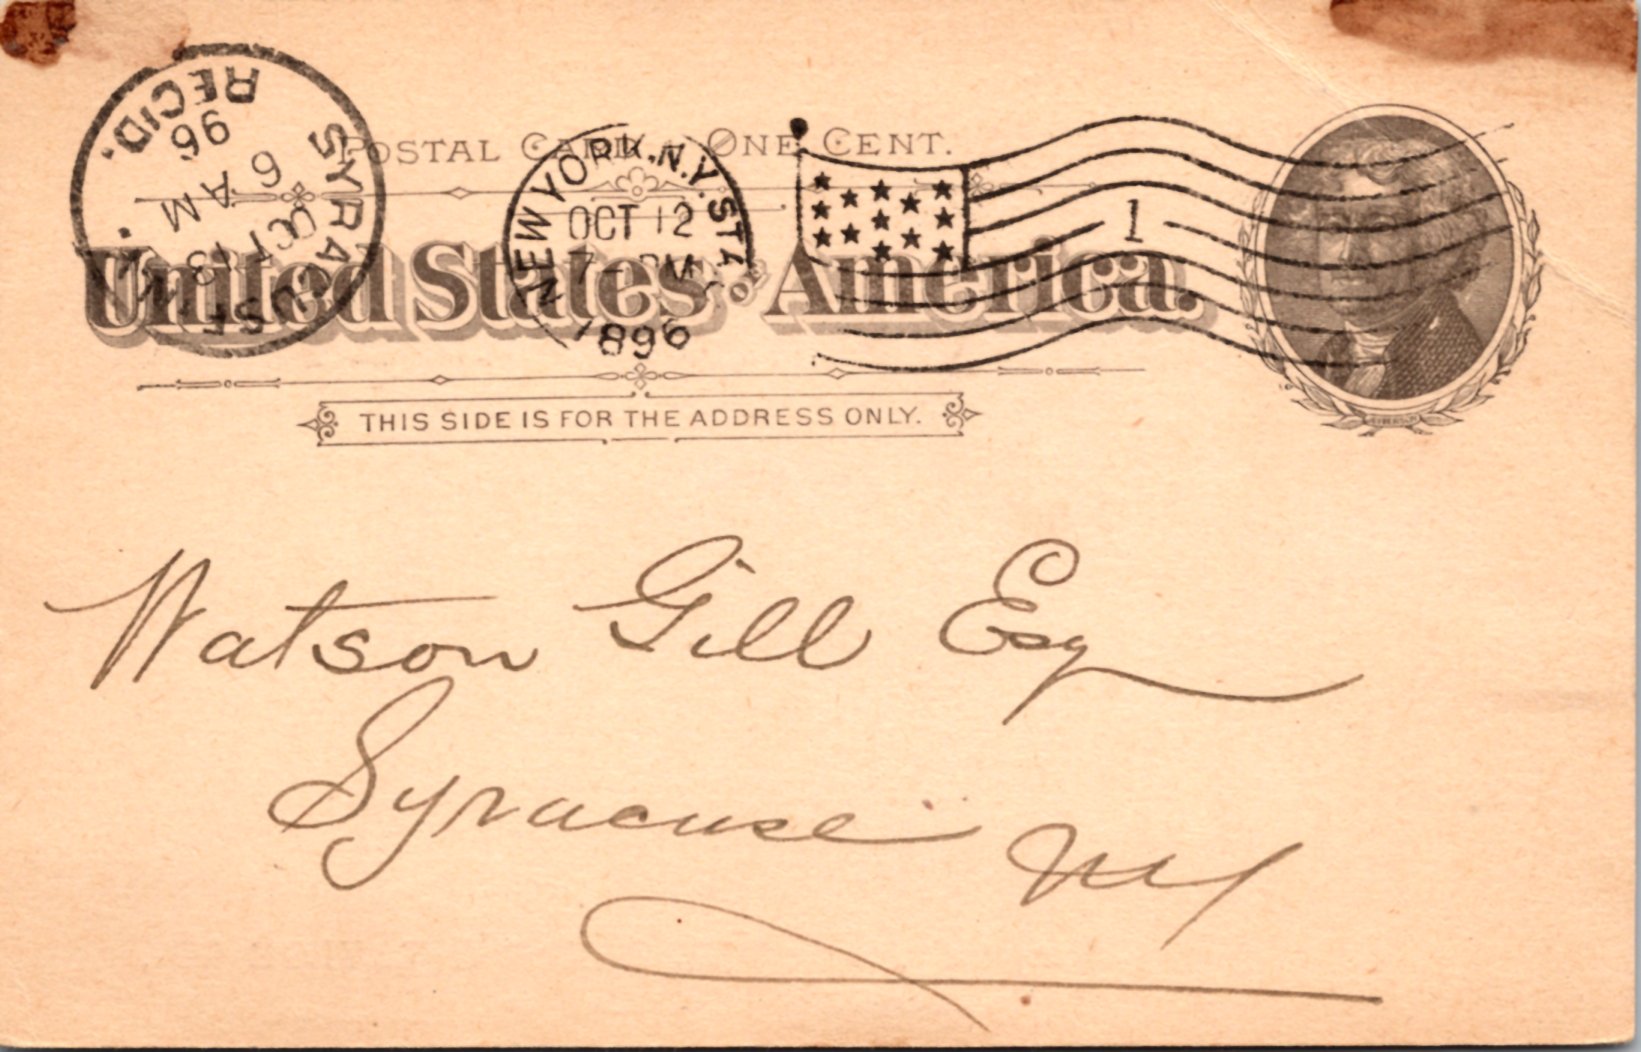 POSTAL CARD. ONE CENT.
United States of America.
THIS SIDE IS FOR THE ADDRESS ONLY.
SYRACUSE, N.Y.
OCT 13
6 AM
96
REC'D.
NEW YORK, N.Y. STA.
OCT 12
7 - PM
1896
1
Watson Gill Esq
Syracuse
NY